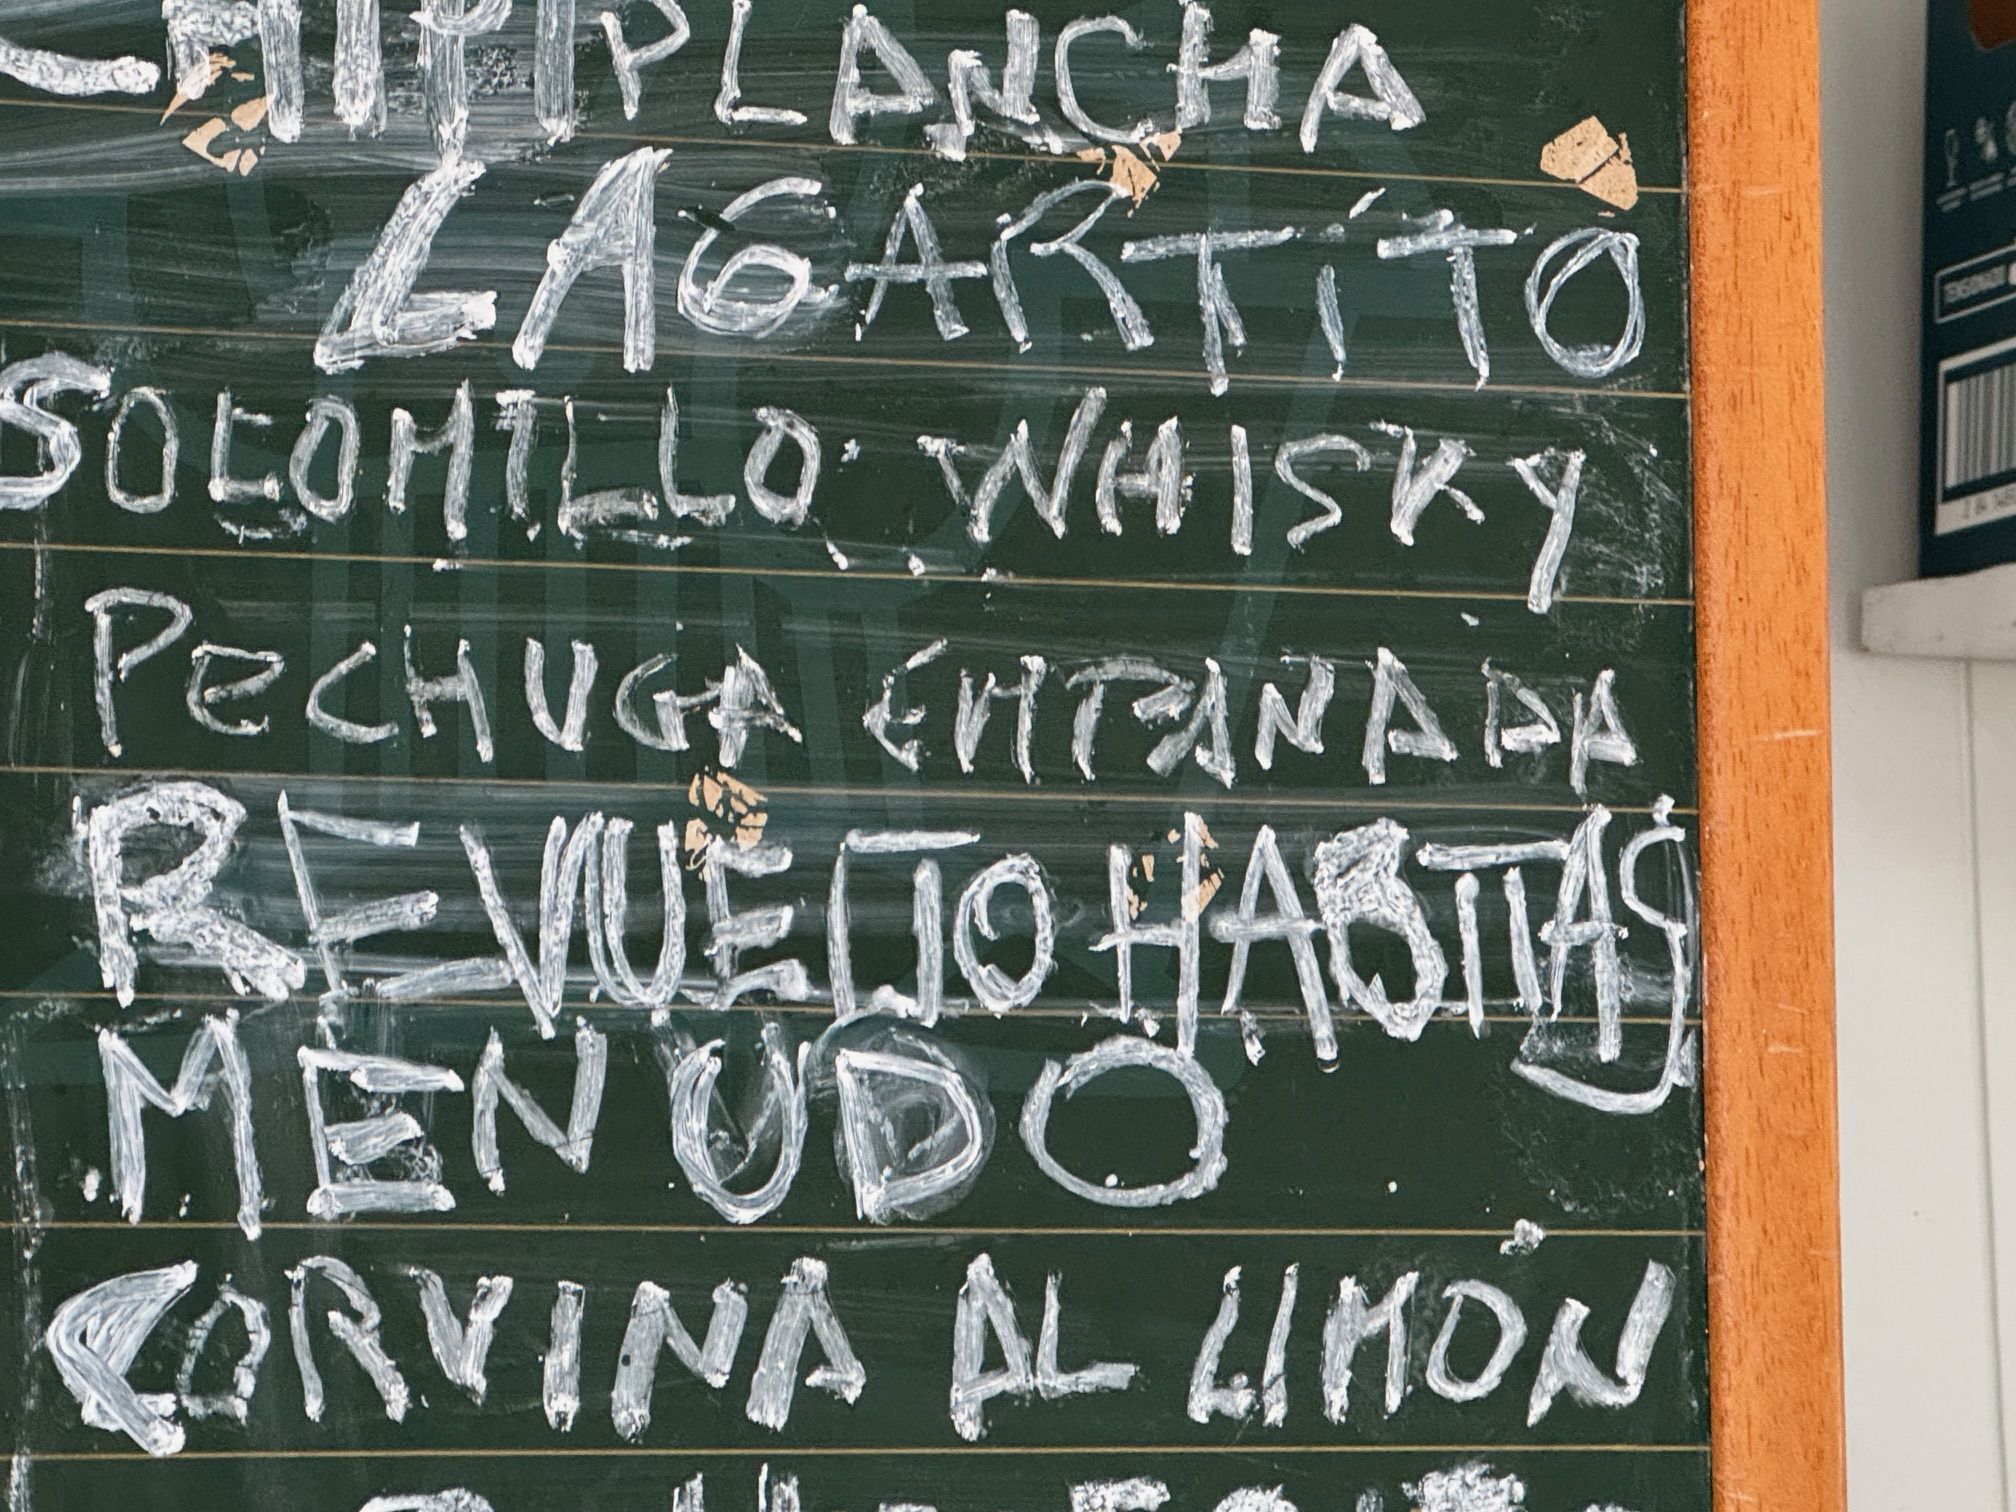 CHIPI PLANCHA
LAGARTITO
SOLOMILLO WHISKY
PECHUGA EMPANADA
REVUELTO HABITAS
MENUDO
CORVINA AL LIMON